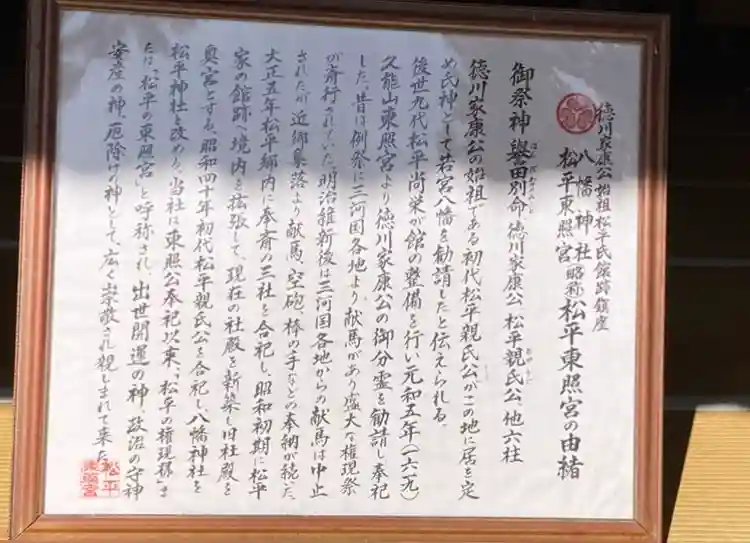 徳川家康公始祖松平氏館跡鎮座
八幡神社
松平東照宮 略称 松平東照宮の由緒
御祭神 譽田別命 徳川家康公 松平親氏公、他六柱
徳川家康公の始祖である初代松平親氏公がこの地に居を定
め氏神として若宮八幡を勧請したと伝えられる。
後世九代松平尚栄が館の整備を行い元和五年(一六一九)
久能山東照宮より徳川家康公の御分霊を勧請し奉祀
した。昔は例祭に三河国各地より、献馬があり盛大な権現祭
が斎行されていた。明治維新後は三河国各地からの献馬は中止
されたが、近郷集落より献馬、空砲、棒の手などの奉納が続いた。
大正五年松平郷内に奉斎の三社を合祀し、昭和初期に松平
家の館跡へ境内を拡張して、現在の社殿を新築し旧社殿を
奥宮とする。昭和四十年初代松平親氏公を合祀し、八幡神社を
松平神社と改める。当社は東照公奉祀以来、「松平の権現様」ま
たは、「松平の東照宮」と呼称され、出世開運の神、政治の守神
安産の神、厄除けの神として、広く崇敬され親しまれて来た。
松平
東照宮